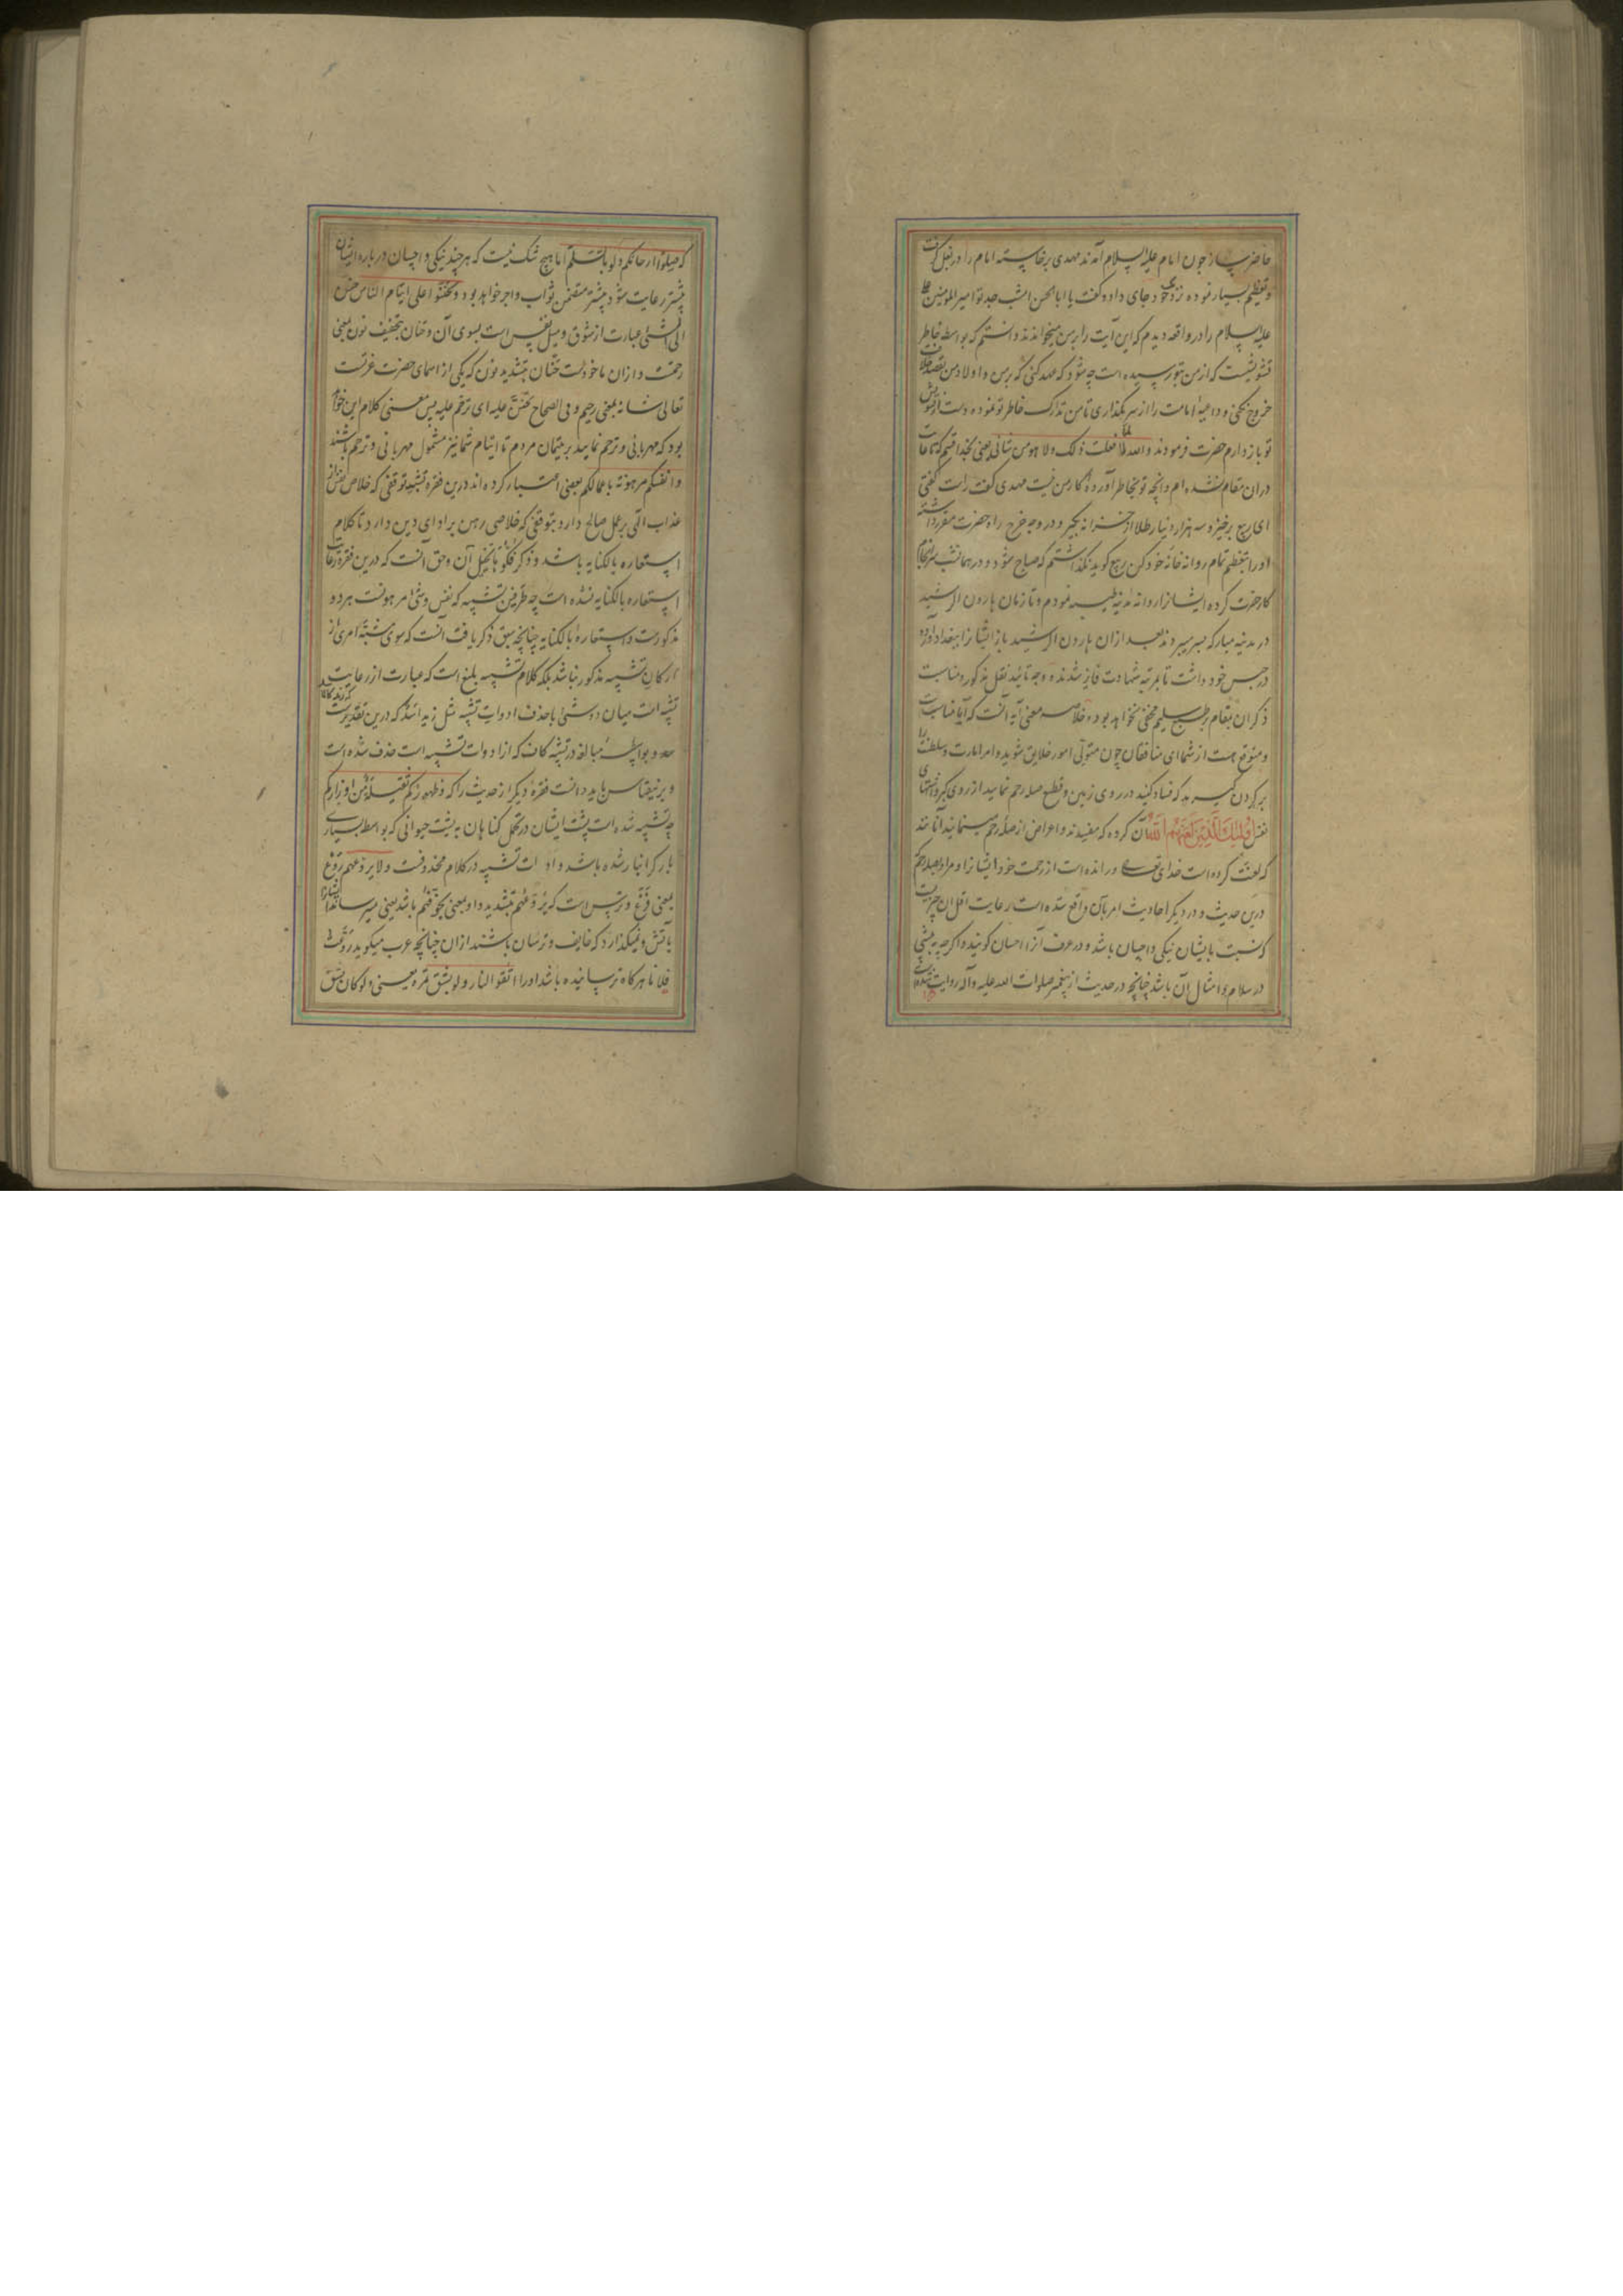 حاضر ساز چون امام علیه السلام آمدند مهدی برخاسته امام را در بغل گرفت
و تعظیم بسیار نموده نزدیک خود جای داد و گفت یا ابا الحسن امشب جد تو امیر المومنین علی
علیه السلام را در واقعه دیدم که این آیت را بر من میخواندند دانستم که بواسطه خاطر
تشویشست که از من بتو رسیده است چه شود که عهد کنی که بر من و اولاد من بقصد خلاف
خروج نکنی و داعیهٔ امامت را از سر بگذاری تا من تدارک خاطر تو نموده دست از تشویش
تو باز دارم حضرت فرمودند والله لا فعلت ذلک ولا هو من شانی یعنی بخدا قسم که تا غایت
در آن مقام نشده ام و آنچه تو بخاطر آورده کار من نیست مهدی گفت راست گفتی
ای ربیع برخیز و سه هزار دینار طلا از خزانه بگیر و در وجه خرج راه حضرت مقرر داشته
او را بتعظیم تمام روانه خانه خود کن ربیع گوید نگذاشتم که صباح شود و در همان شب سرانجام
کار حضرت کرده ایشانرا روانه مدینه طیبه نمودم و تا زمان هارون الرشید
در مدینه مبارکه بسر میبردند بعد از آن هارون الرشید باز ایشانرا ببغداد آورده
در حبس خود داشت تا بمرتبه شهادت فایز شدند و وجه تائید نقل مذکور و مناسبت
ذکر آن بمقام بر طبع سلیم مخفی نخواهد بود و خلاصه معنی آیه آنست که آیا مناسبت
و متوقع هست از شما ای منافقان چون متولی امور خلایق شوید و امر امارت و سلطنت را
بر گردن گیرید که فساد کنید در روی زمین و قطع صله رحم نمایید از روی کبر و اقتضای
نفس اُولئِکَ الَّذینَ لَعَنَهُمُ اللهُ آن کرده که مفیدند و اعراض از صلهٔ رحم مینمایند آنانند
که لعنت کرده است خدای تعالی و رانده است از رحمت خود ایشانرا و مراد بصله رحم
درین حدیث و در دیگر احادیث امر بآن واقع شده است رعایت اقل آن چیزیست
که نسبت بایشان نیکی و احسان باشد و در عرف آنرا احسان گویند و اگر چه به پیشی
در سلام و امثال آن باشد چنانچه در حدیث از پیغمبر صلوات الله علیه و آله روایت شده
که صلوا ارحامکم ولو بالسلم اما هیچ شک نیست که هر چند نیکی و احسان در باره ایشان
بیشتر رعایت شود بیشتر متضمن ثواب و اجر خواهد بود و تحننوا علی ایتام الناس حنین
الی الشئ عبارت از شوق و میل نفس است بسوی آن و حنان بتخفیف نون بمعنی
رحمت و از آن ماخوذست حنّان بتشدید نون که یکی از اسمای حضرت عزتست
تعالی شانه بمعنی رحیم و فی الصحاح تحنن علیه ای ترحم علیه پس معنی کلام این خواهد
بود که مهربانی و ترحم نمایید بر یتیمان مردم تا ایتام شما نیز مشمول مهربانی و ترحم باشند
و انفسکم مرهونة باعمالکم بعضی اعتبار کرده اند درین فقره تشبیه توقفی که خلاص نفس از
عذاب الهی بر عمل صالح دارد بتوقفی که خلاصی رهن بر ادای دین دارد تا کلام
استعاره بالکنایه باشد و ذکر فکّوها تخییل آن و حق آنست که درین فقره رعایت
استعاره بالکنایه نشده است چه طرفین تشبیه که نفس و شئ مرهونست هر دو
مذکورست و استعارهٔ بالکنایه چنانچه سبق ذکر یافت آنست که سوی مشبّه امری از
ارکان تشبیه مذکور نباشد بلکه کلام تشبیه بلیغ است که عبارت از رعایت
تشبیه است میان دو شئ با حذف ادوات تشبیه مثل زید اسد که درین تقدیرست
و بواسطه مبالغه در تشبیه کاف که از ادوات تشبیه است حذف شده است
و برین قیاس باید دانست فقره دیگر از حدیث را که و ظهورکم ثقیلة من اوزارکم
چه تشبیه شده است پشت ایشان در تحمل گناهان به پشت حیوانی که بواسطه بسیاری
بار گرانبار شده باشد و ادات تشبیه در کلام محذوفست ولا یروعهم روع
بمعنی فزع و ترس است که یروّعهم بتشدید واو بمعنی یخوّفهم باشد یعنی میترساند ایشانرا
بآتش و نمیگذارد که خایف و ترسان باشند از آن چنانچه عرب میگوید روّعت
فلانا هرگاه ترسانیده باشد او را اتقوا النار ولو بشق تمرة یعنی ولو کان بشق